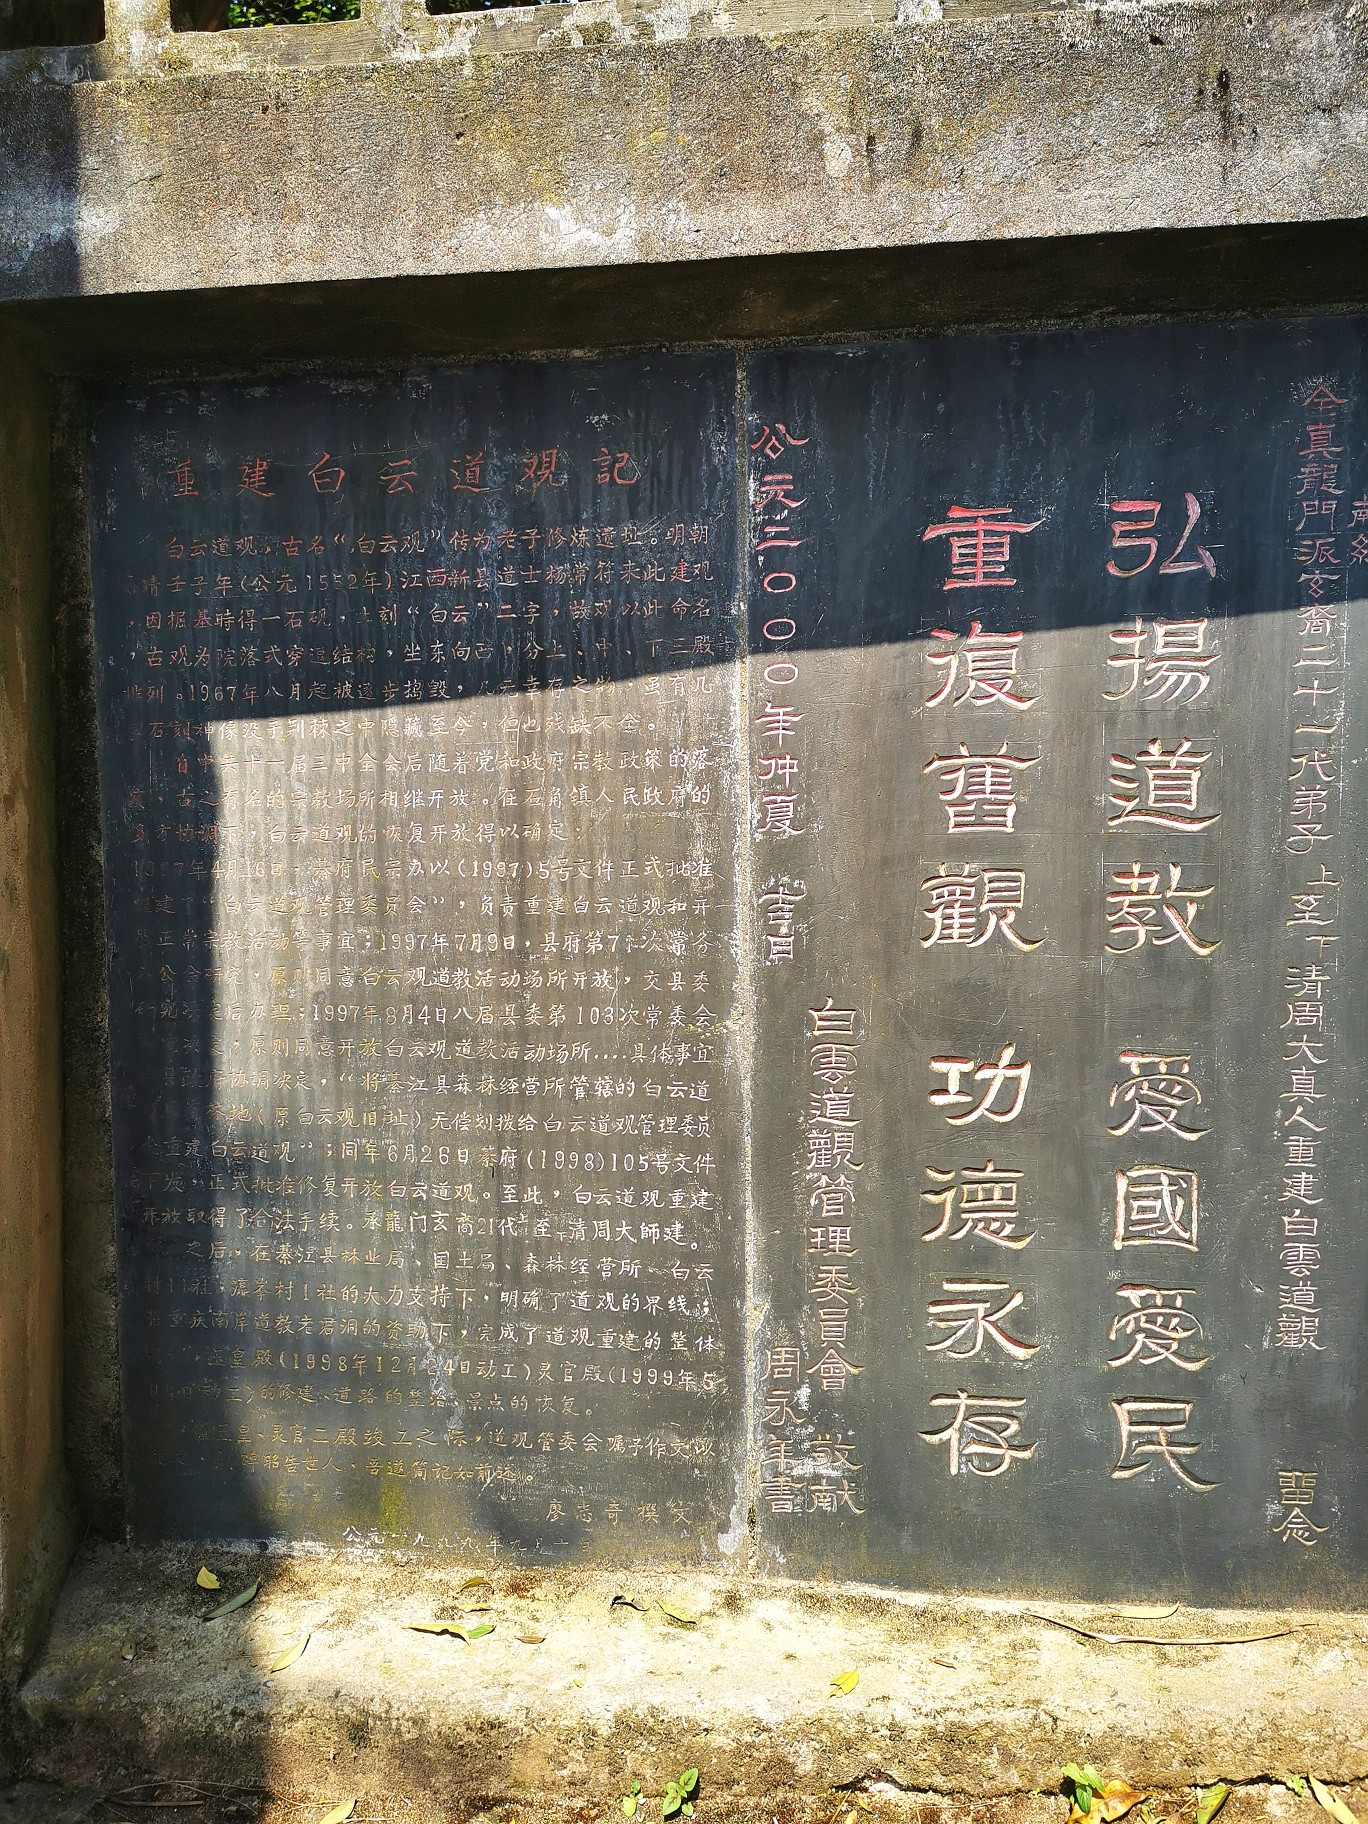 全真龍門派玄裔二十一代弟子上至下清周大真人重建白雲道觀 留念
弘揚道教 愛國愛民
重復舊觀 功德永存
白雲道觀管理委員會 敬献
公元二〇〇〇年仲夏 吉日 周永年書
重建白云道观記
白云道观，古名“白云观”传为老子修炼遗址。明朝
清壬子年(公元1552年)江西新县道士杨常符来此建观
，因掘基時得一石砚，上刻“白云”二字，故观以此命名
，古观为院落式穿逗结构，坐东向西，分上、中、下三殿
排列。1967年八月起被逐步捣毁，几无幸存之物，虽有几
石刻神像没于荆棘之中隐藏至今，但也残缺不全。
自中共十一届三中全会后随着党和政府宗教政策的落
，古之有名的宗教场所相继开放。在石角镇人民政府的
多方协调下，白云道观的恢复开放得以确定：
1997年4月16日，綦府民宗办以(1997)5号文件正式批准
组建了“白云道观管理委员会”，负责重建白云道观和开
展正常宗教活动等事宜；1997年7月9日，县府第71次常务
办公会研究，原则同意白云观道教活动场所开放，交县委
研究决定后办理；1997年8月4日八届县委第103次常委会
决定，原则同意开放白云观道教活动场所....具体事宜
县政府协调决定，“将綦江县森林经营所管辖的白云道
地(原白云观旧址)无偿划拨给白云道观管理委员
会重建白云道观”；同年6月26日綦府(1998)105号文件
下发，正式批准修复开放白云道观。至此，白云道观重建
开放取得了合法手续。承龍门玄裔21代上至下清周大師建。
之后，在綦江县林业局、国土局、森林经营所、白云
村11社，瀛峯村1社的大力支持下，明确了道观的界线；
在重庆南岸道教老君洞的资助下，完成了道观重建的整体
，玉皇殿(1998年12月24日动工)灵官殿(1999年5
动工)的修建、道路的整治、景点的恢复。
值玉皇、灵官二殿竣工之际，道观管委会嘱予作文以
碑昭告世人，吾遂简记如前述。
廖志奇撰文
公元一九九九年九月一